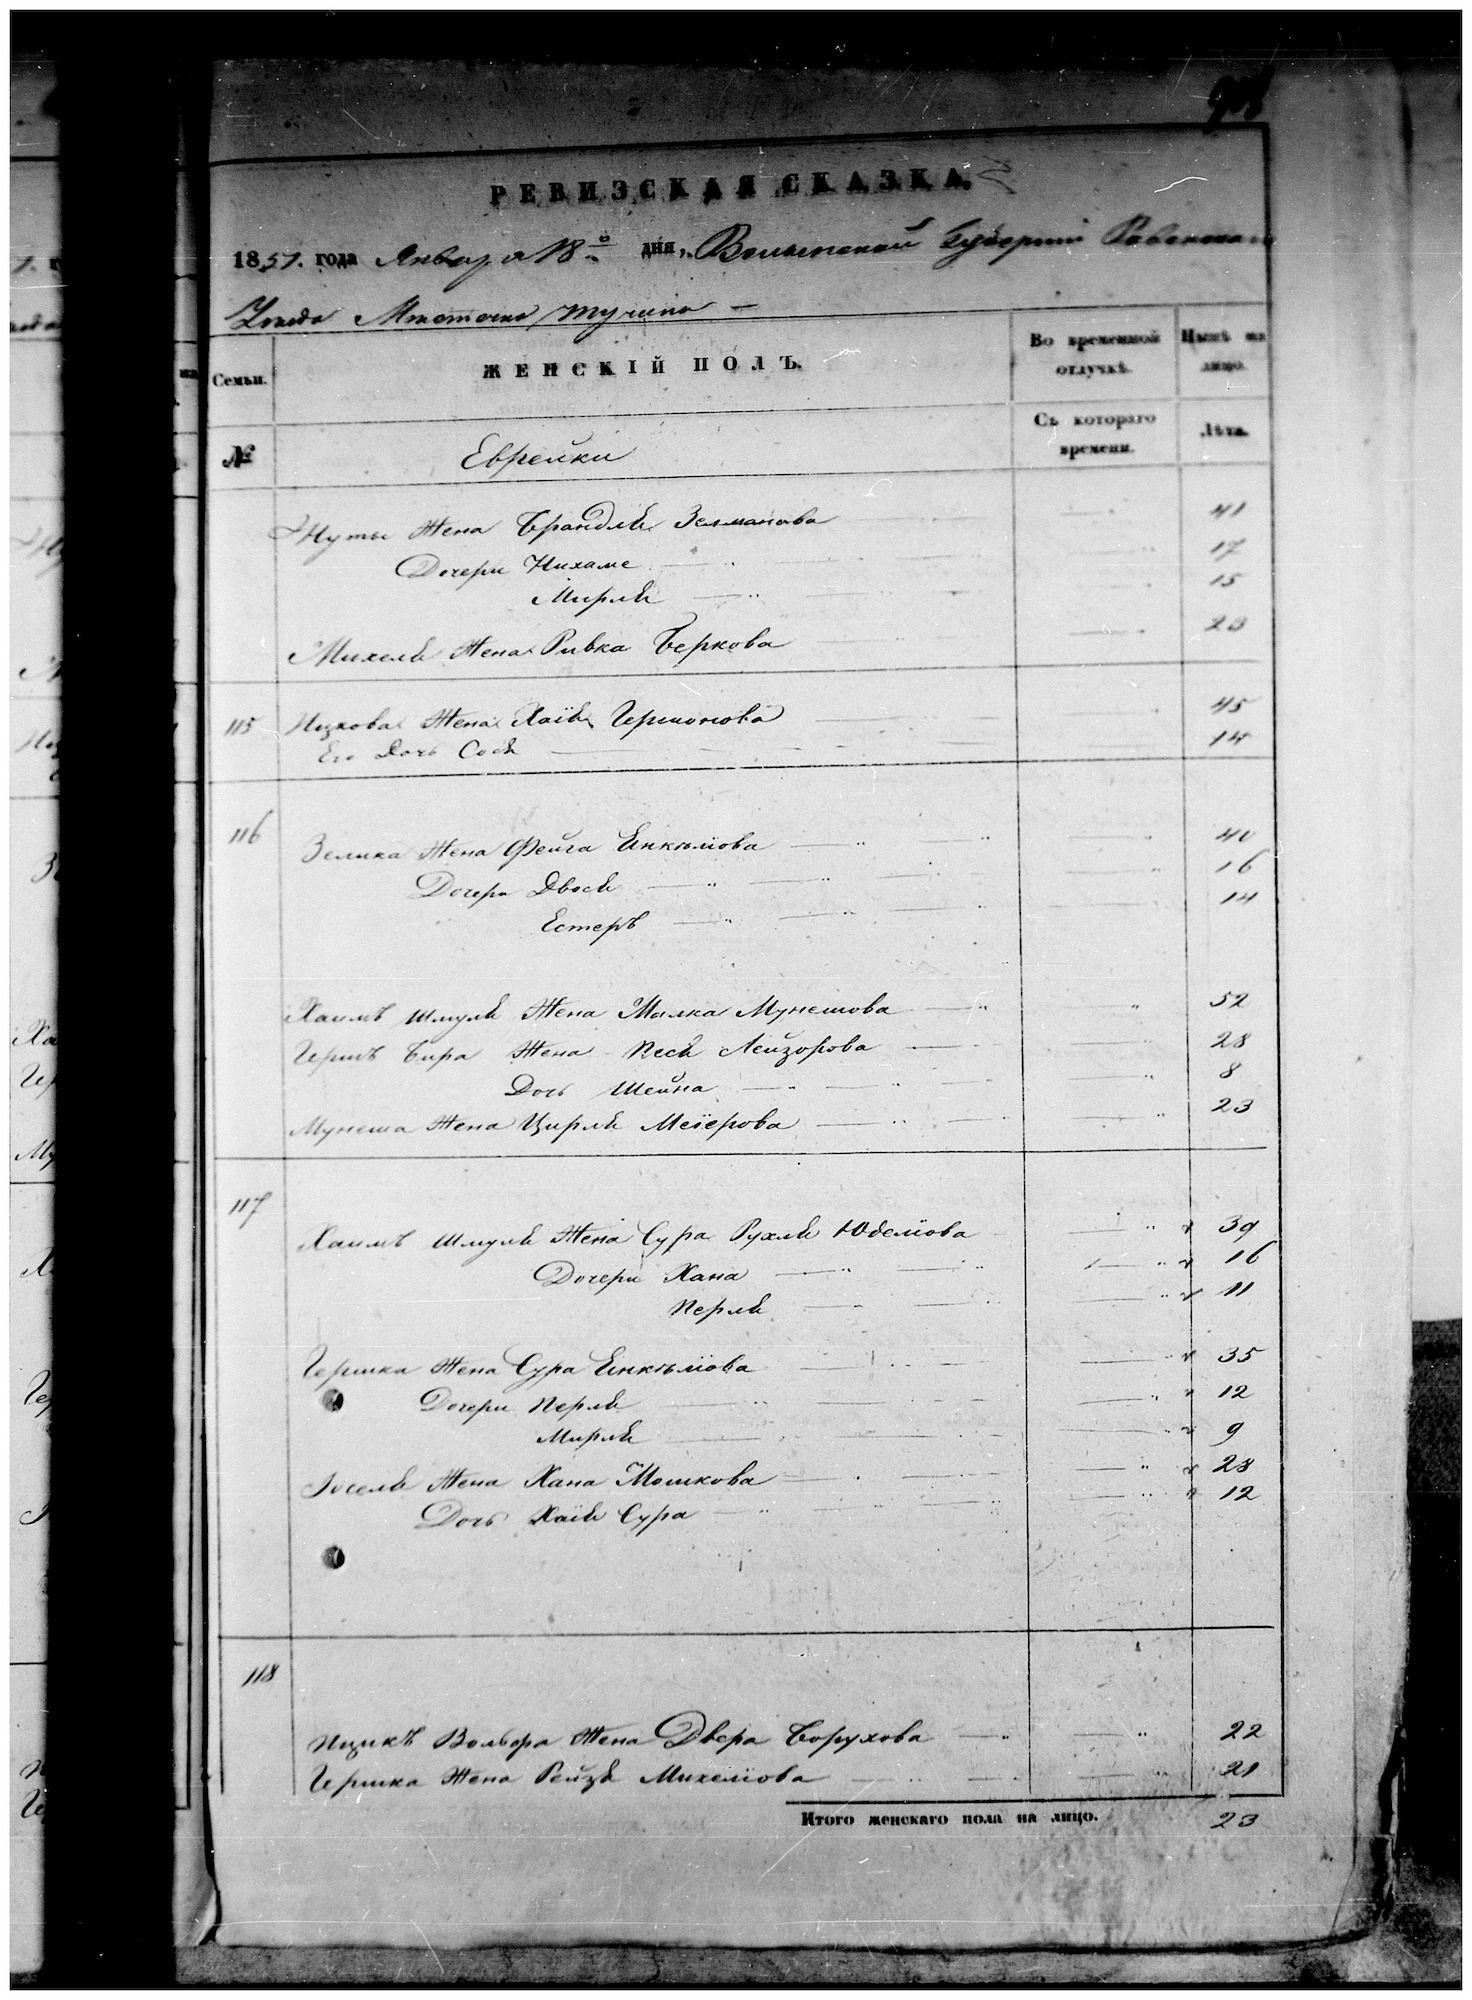 РЕВИЗСКАЯ СКАЗКА.
1851. года Января 18го дня, Волынской Губернии Ровенскаго
Уезда Местечка Тучина —
Семьи.
ЖЕНСКІЙ ПОЛЪ.
Во временной отлучкѣ.
Нынѣ на лицо.
№
Еврейки
Съ котораго времени.
Лѣта.
Нуты Жена Брандля Зелманова 41
Дочери Нихаме 17
Мирля 15
Михеля Жена Ривка Беркова 23
115 Ицкова Жена Хаія Гершонова 45
Его Дочь Сося 14
116 Зелика Жена Фейга Енкелiова 40
Дочери Двося 16
Естеръ 14
Хаимъ Шмуля Жена Малка Мунешова 52
Гершъ Бира Жена Песя Лейзорова 28
Дочь Шейна 8
Мунеша Жена Цирля Меiерова 23
117
Хаимъ Шмуля Жена Сура Рухля Юделiова 39
Дочери Хана 16
Перля 11
Гершка Жена Сура Енкелiова 35
Дочери Перля 12
Мирля 9
Iоселя Жена Хана Мошкова 28
Дочь Хаiя Сура 12
118
Ицикъ Вольфа Жена Двера Борухова 22
Гершка Жена Рейзя Михелiова 21
Итого женскаго пола на лицо. 23